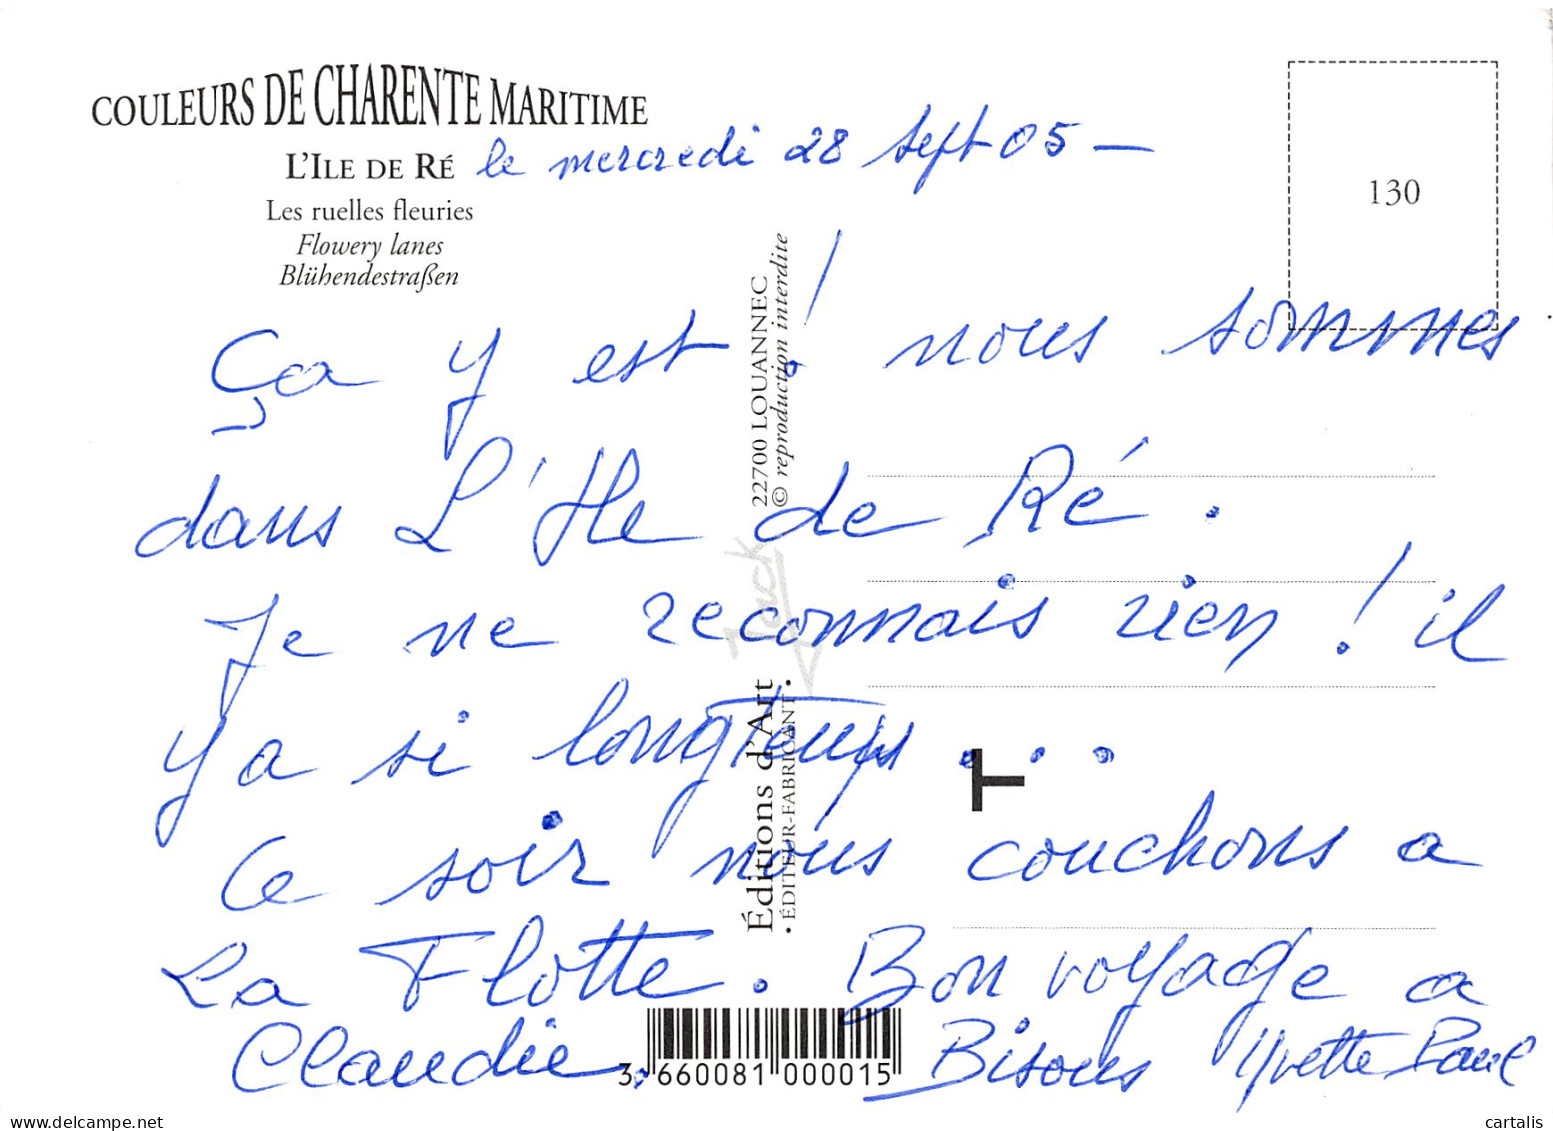 COULEURS DE CHARENTE MARITIME
L'ILE DE RÉ
Les ruelles fleuries
Flowery lanes
Blühendestraßen
le mercredi 28 sept 05 —
130
Ça y est ! nous sommes
dans L'Ile de Ré.
Je ne reconnais rien ! il
y a si longtemps ...
Ce soir nous couchons a
La Flotte. Bon voyage a
Claudie. Bisous Yvette Paul
22700 LOUANNEC
© reproduction interdite
Jack
Éditions d'Art
• ÉDITEUR-FABRICANT •
T
3 660081 000015
delcampe.net
cartalis